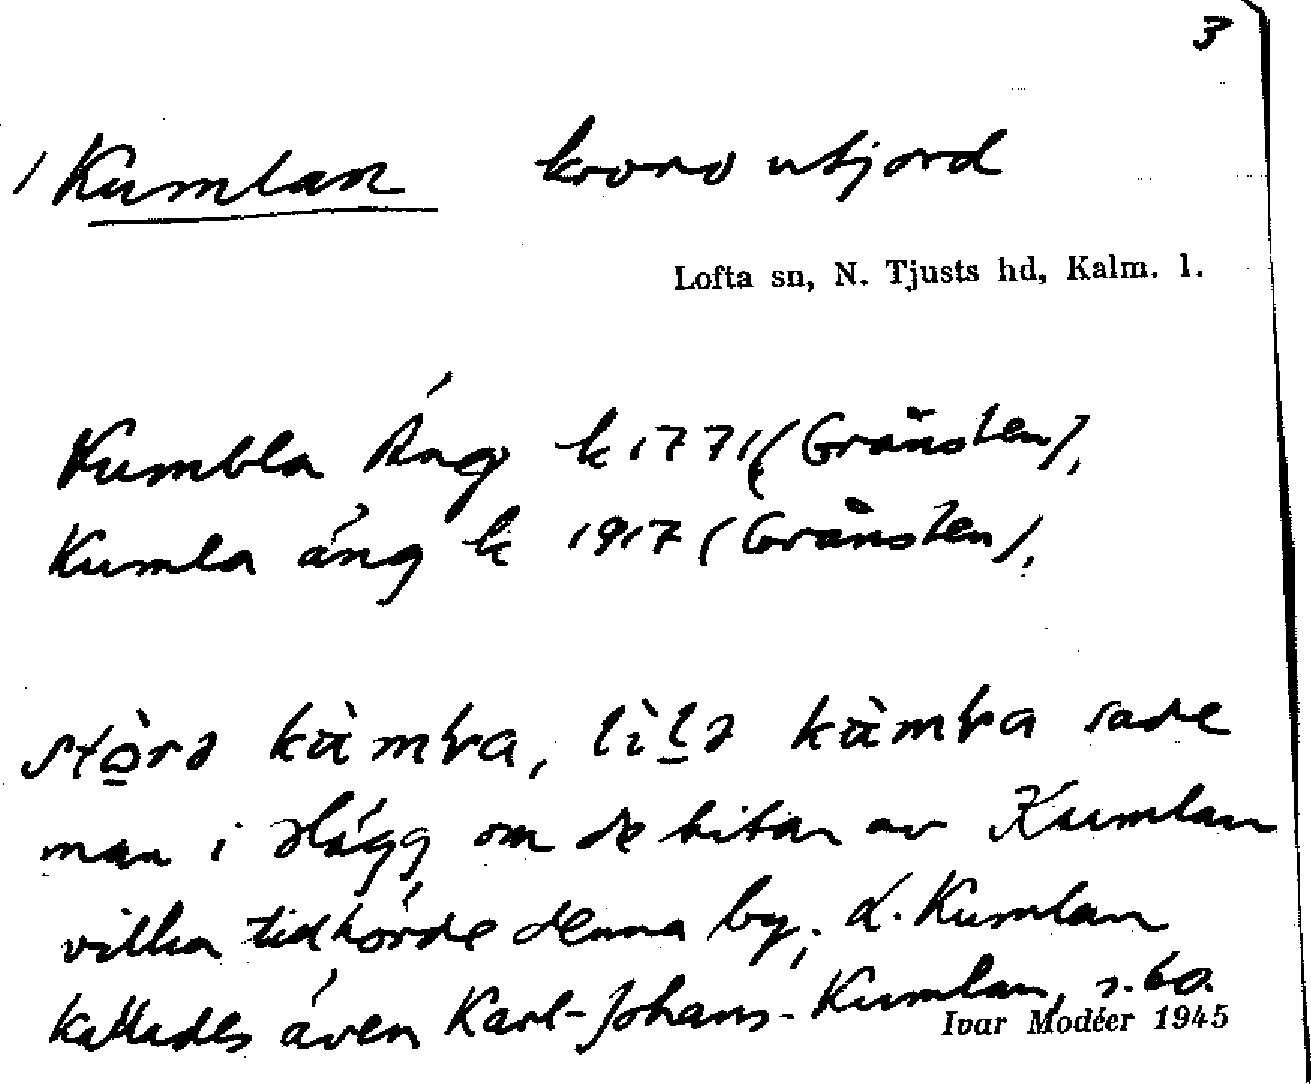 3
/ Kumlan krono utjord
Lofta sn, N. Tjusts hd, Kalm. l.
Kumbla Äng k 1771 (Gränsten),
Kumla äng k 1917 (Gränsten),
störa kämbra, lila kämbra sade
man i Hägg om de bitar av Kumlan
vilka tidhörde denna by; L. Kumlan
kallades även Karl-Johans-Kumlan, s. 60.
Ivar Modéer 1945